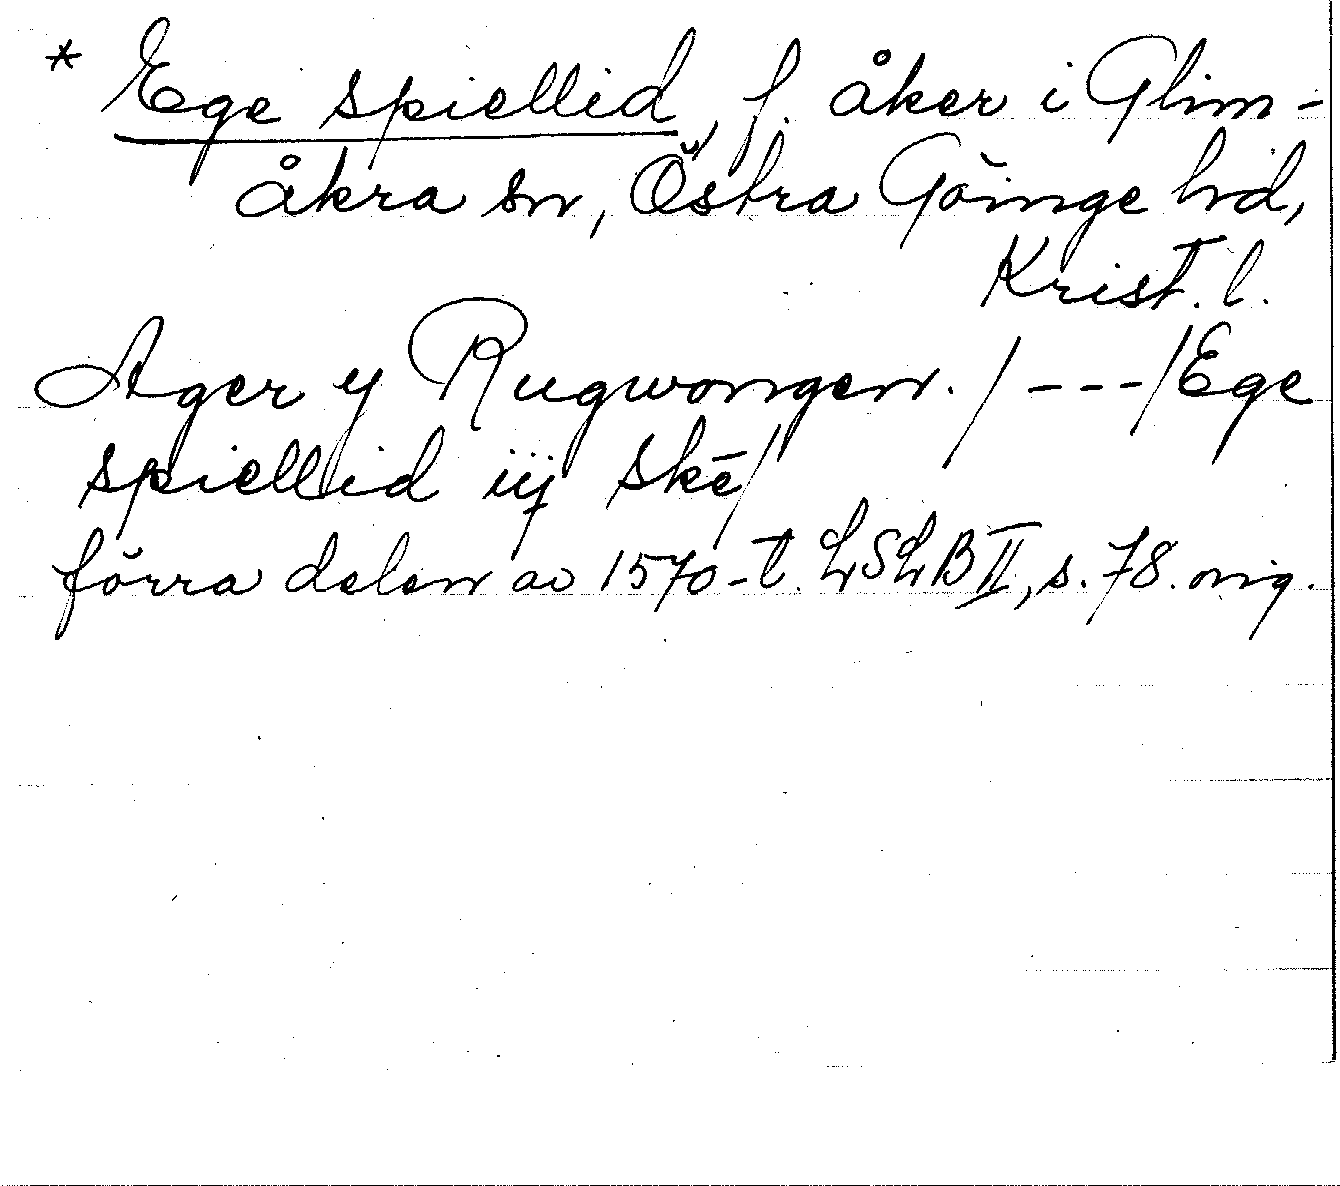 * Ege spiellid, f. åker i Glim-
åkra sn, Östra Göinge hd,
Krist. l.
Ager y Rugwongen. / --- / Ege
spiellid iij skē /
förra delen av 1570-t. LSLB II, s. 78. orig.